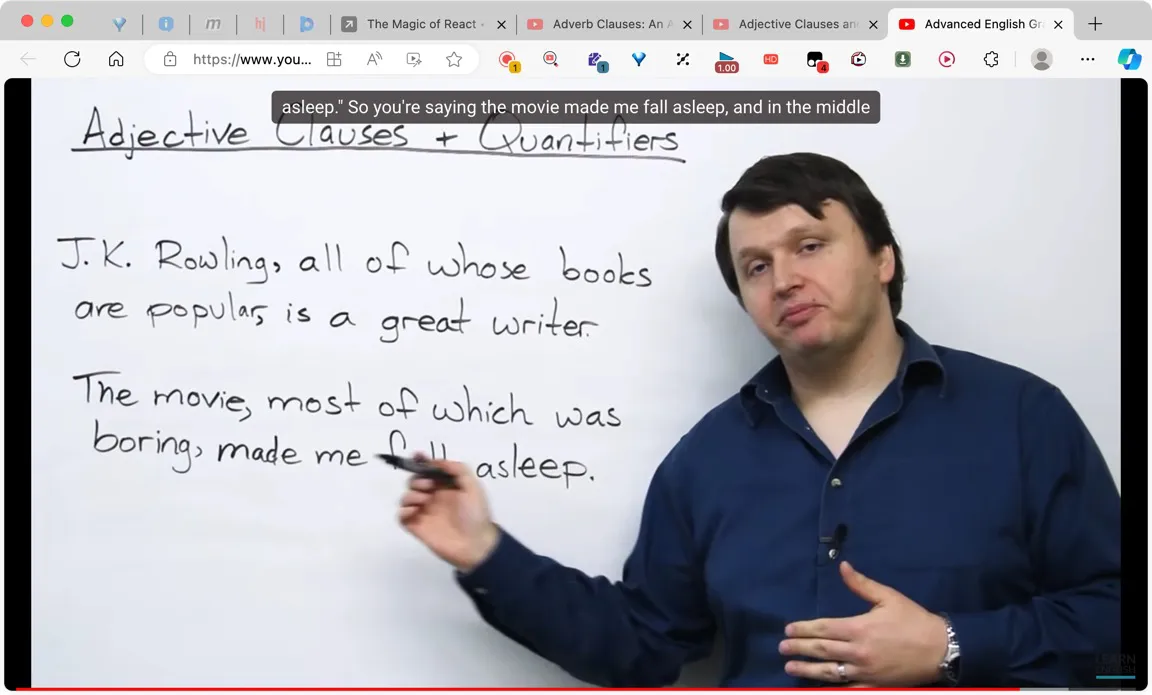 The Magic of React
Adverb Clauses: An
Adjective Clauses an
Advanced English Gra
https://www.you...
1
1
1.00
HD
4
asleep." So you're saying the movie made me fall asleep, and in the middle
Adjective Clauses + Quantifiers
J.K. Rowling, all of whose books
are popular, is a great writer.
The movie, most of which was
boring, made me fall asleep.
LEARN
ENGLISH